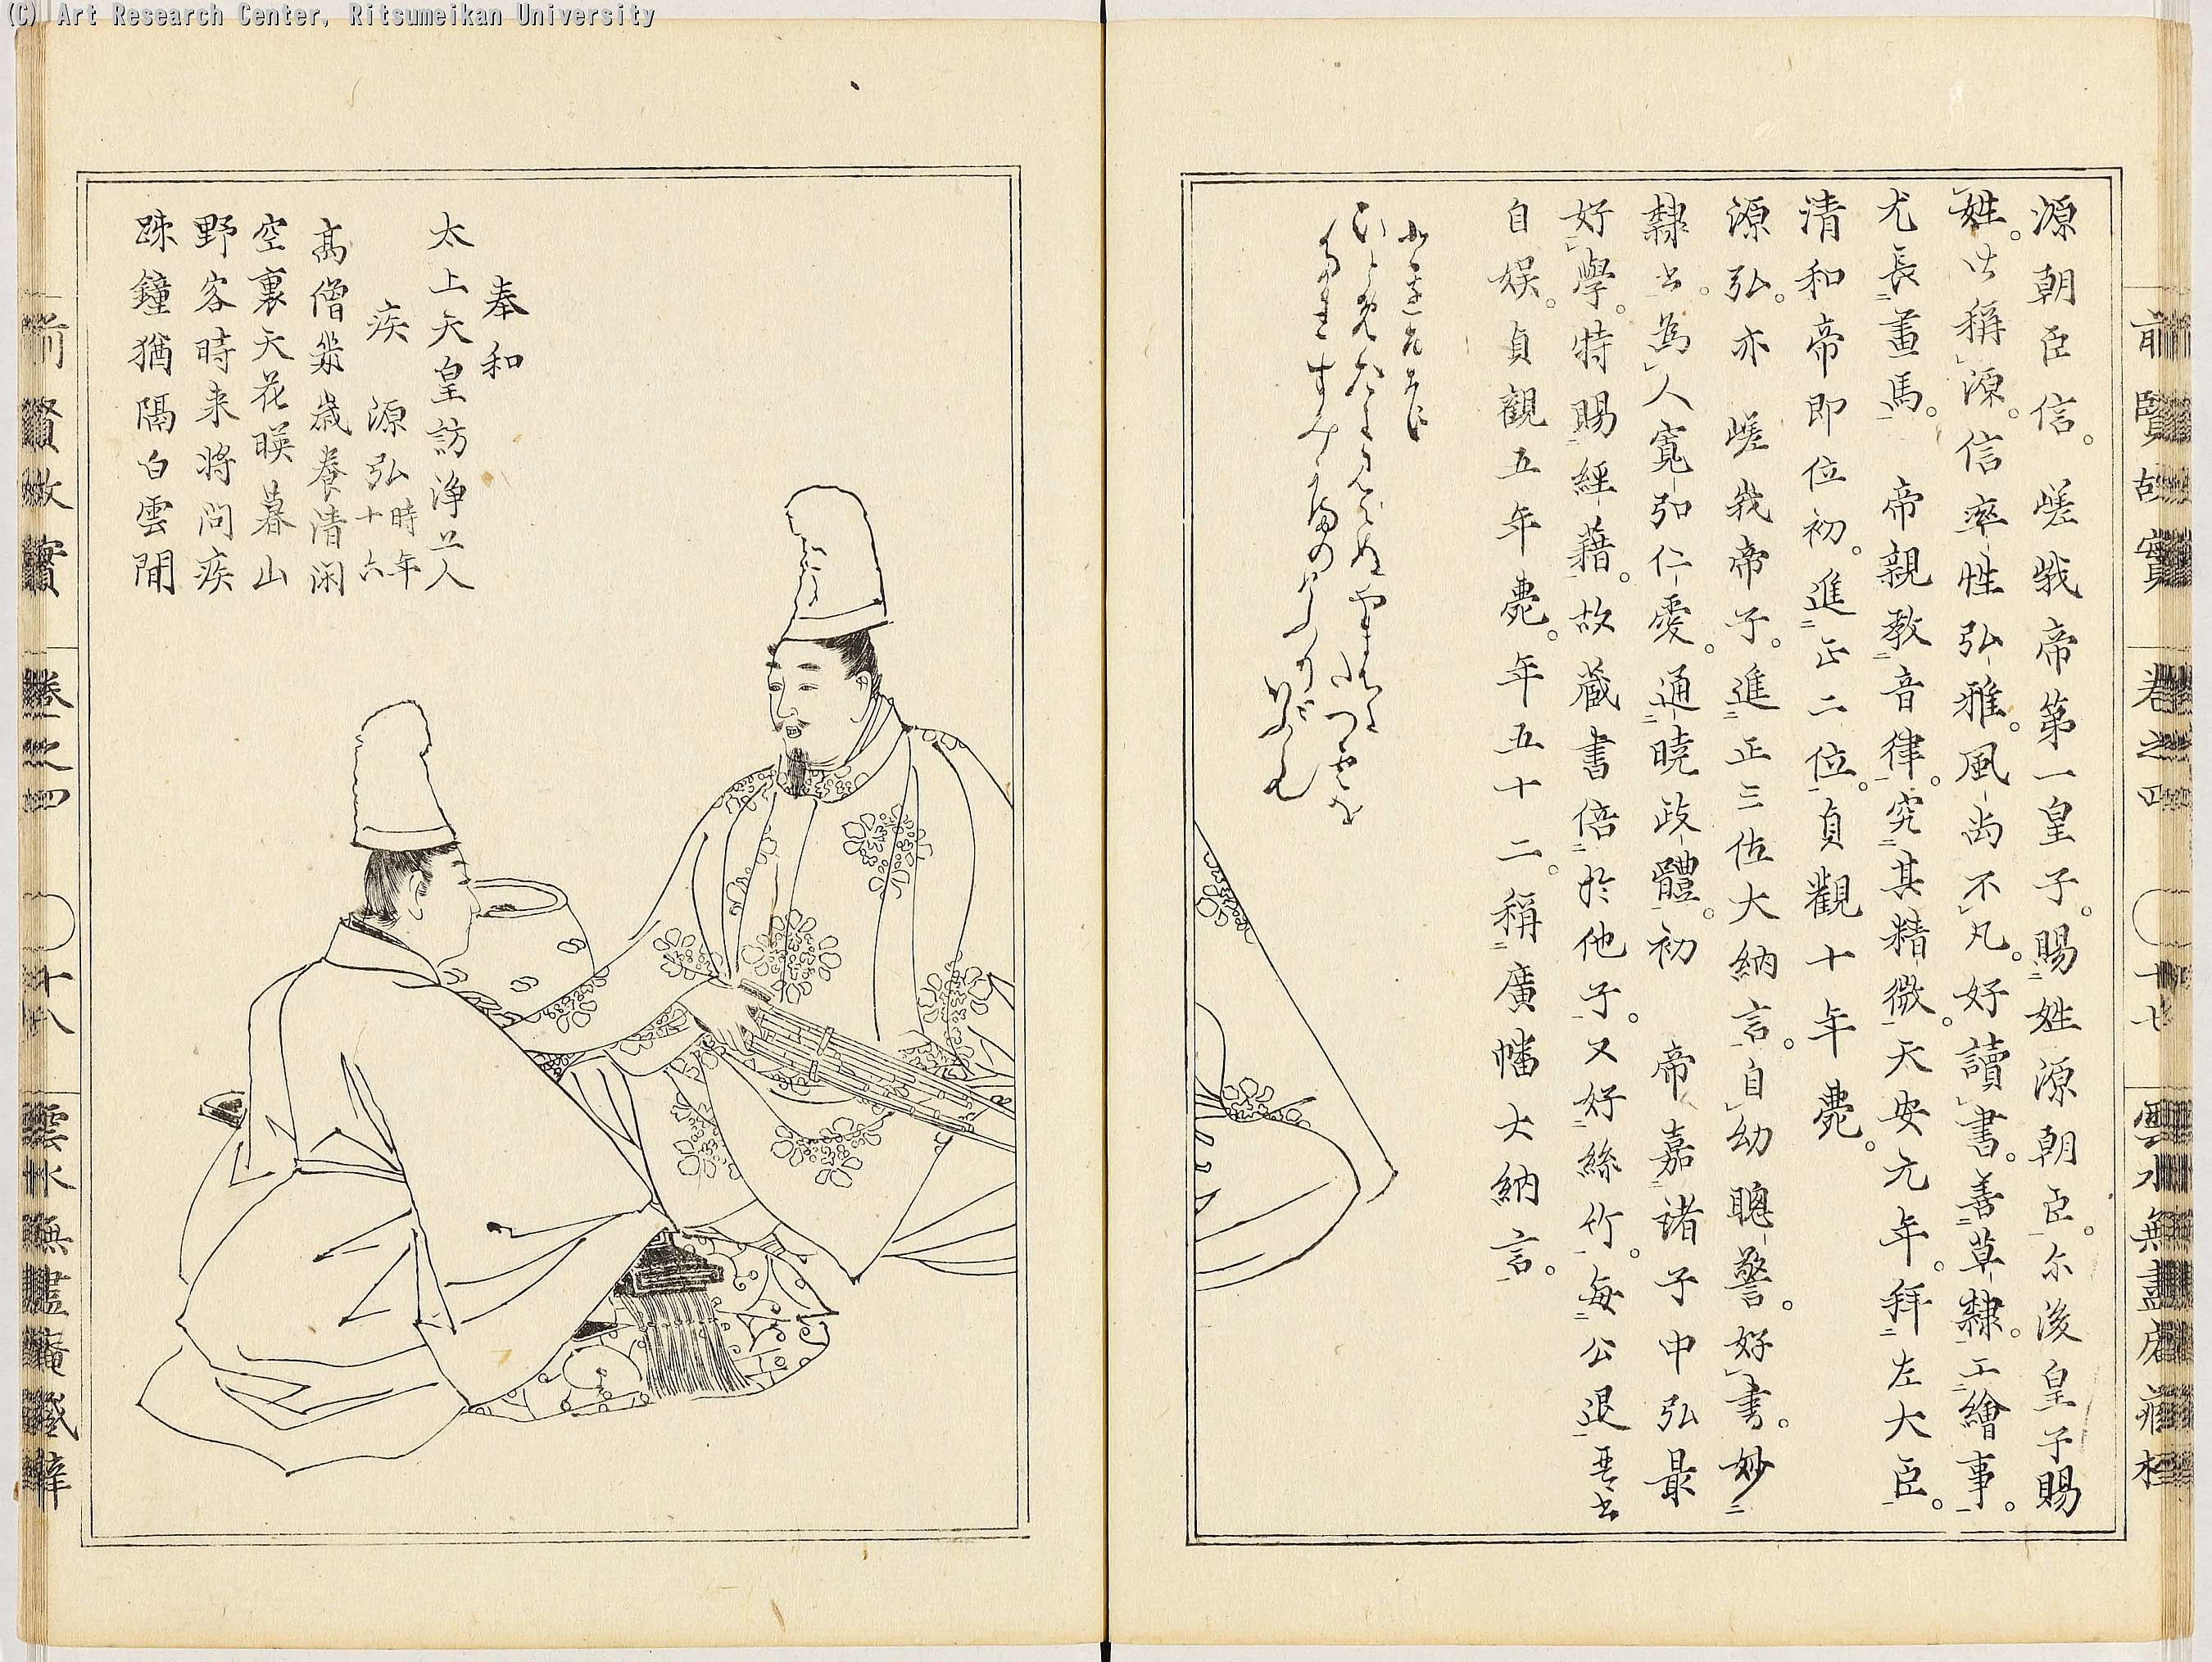 (C) Art Research Center, Ritsumeikan University
前賢故實 卷之四 十七 雲水無盡庵藏梓
源朝臣信。嵯峩帝第一皇子。賜姓源朝臣。尓後皇子賜
姓。皆稱源。信率性弘雅。風尚不凡。好讀書。善草隸。工繪事。
尤長畫馬。帝親教音律。究其精微。天安元年。拜左大臣。
清和帝即位初。進正二位。貞觀十年薨。
源弘。亦嵯峩帝子。進正三位大納言。自幼聰警。好書。妙
隸書。為人寬弘仁愛。通曉政體。初帝嘉諸子中弘最
好學。特賜經藉。故藏書倍於他子。又好絲竹。每公退
自娯。貞觀五年薨。年五十二。稱廣幡大納言。
奉和
太上天皇訪淨上人
疾 源弘 時年十六
高僧幾歳養清閑
空裏天花暎暮山
野客時来將問疾
踈鐘猶隔白雲間
前賢故實 卷之四 十八 雲水無盡庵藏梓